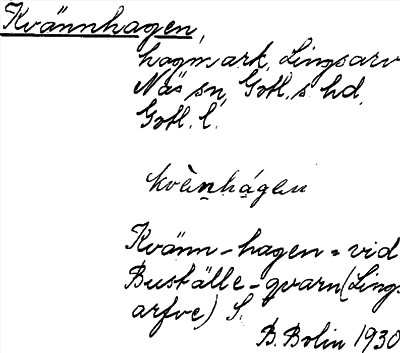 Kvännhagen,
hagmark, Lingsarv
Näs sn, Gotl. s. hd,
Gotl. l.
kvènhágen
Kvänn-hagen = vid
Buställe-qvarn (Lings-
arfve) S.
B. Bolin 1930